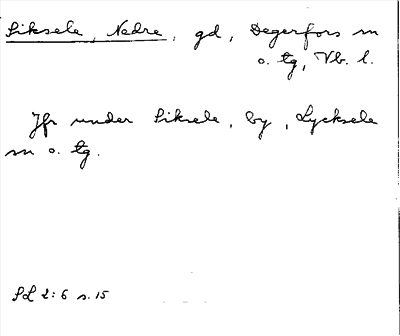 Siksele, Nedre, gd, Degerfors sn
o. tg, Vb. l.
Jfr under Siksele, by, Lycksele
sn o. tg.
SL 2:6 s. 15